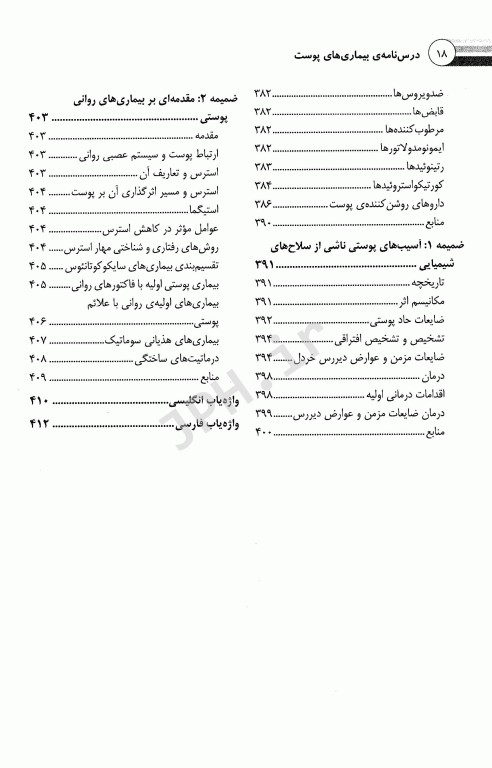 ۱۸ درس‌نامه‌ی بیماری‌های پوست
ضدویروس‌ها ۳۸۲
قابض‌ها ۳۸۲
مرطوب‌کننده‌ها ۳۸۲
ایمونومدولاتورها ۳۸۲
رتینوئیدها ۳۸۳
کورتیکواستروئیدها ۳۸۴
داروهای روشن‌کننده‌ی پوست ۳۸۶
منابع ۳۹۰
ضمیمه ۱: آسیب‌های پوستی ناشی از سلاح‌های
شیمیایی ۳۹۱
تاریخچه ۳۹۱
مکانیسم اثر ۳۹۱
ضایعات حاد پوستی ۳۹۲
تشخیص و تشخیص افتراقی ۳۹۴
ضایعات مزمن و عوارض دیررس خردل ۳۹۴
درمان ۳۹۸
اقدامات درمانی اولیه ۳۹۸
درمان ضایعات مزمن و عوارض دیررس ۳۹۹
منابع ۴۰۰
ضمیمه ۲: مقدمه‌ای بر بیماری‌های روانی
پوستی ۴۰۳
مقدمه ۴۰۳
ارتباط پوست و سیستم عصبی روانی ۴۰۳
استرس و تعاریف آن ۴۰۳
استرس و مسیر اثرگذاری آن بر پوست ۴۰۴
استیگما ۴۰۴
عوامل مؤثر در کاهش استرس ۴۰۴
روش‌های رفتاری و شناختی مهار استرس ۴۰۴
تقسیم‌بندی بیماری‌های سایکوکوتانئوس ۴۰۵
بیماری پوستی اولیه با فاکتورهای روانی ۴۰۵
بیماری‌های اولیه‌ی روانی با علائم
پوستی ۴۰۶
بیماری‌های هذیانی سوماتیک ۴۰۷
درماتیت‌های ساختگی ۴۰۸
منابع ۴۰۹
واژه‌یاب انگلیسی ۴۱۰
واژه‌یاب فارسی ۴۱۲
JPH.ir